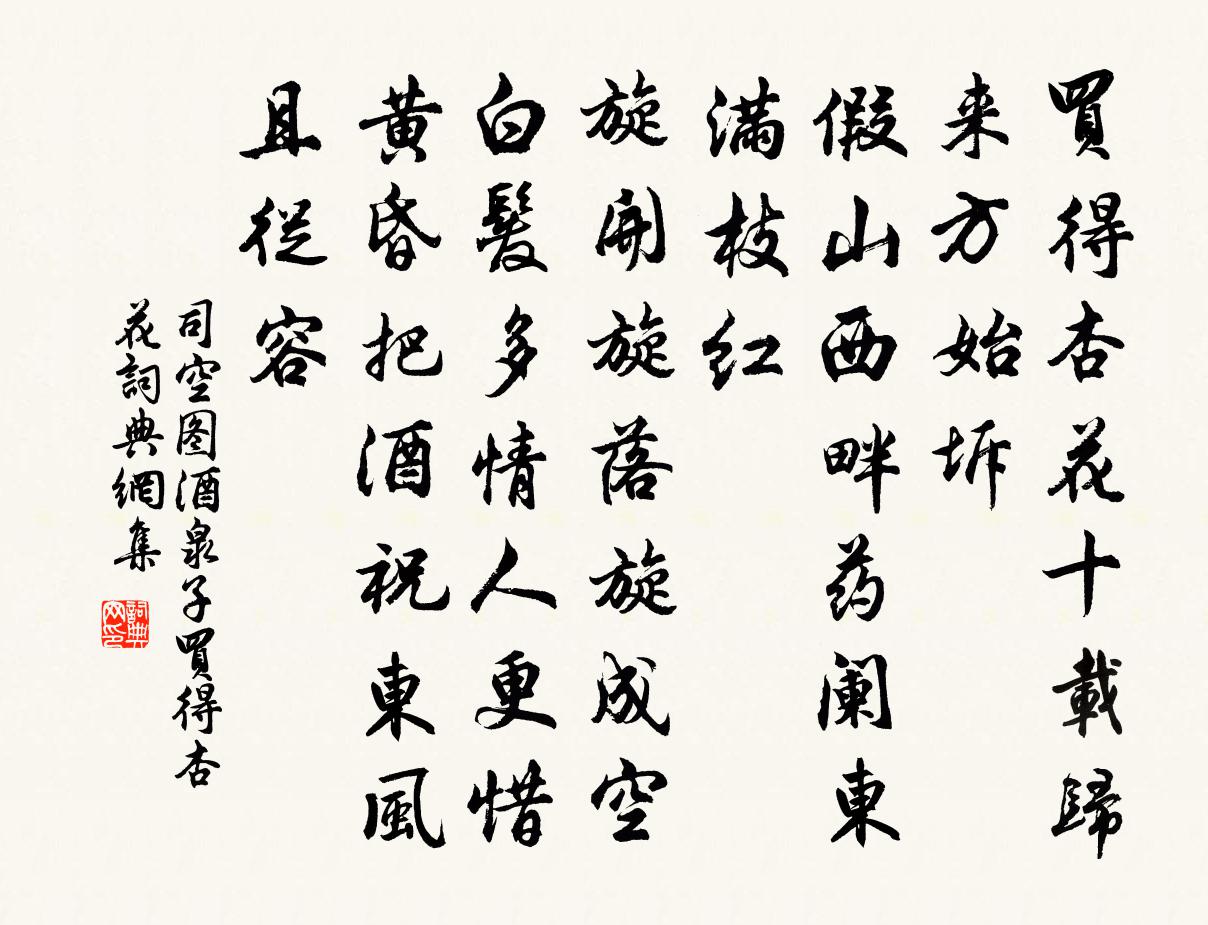 買得杏花十載歸
来方始坼
假山西畔药阑東
满枝红
旋開旋落旋成空
白髮多情人更惜
黄昏把酒祝東風
且從容
司空图酒泉子買得杏
花詞典網集
詞典网印